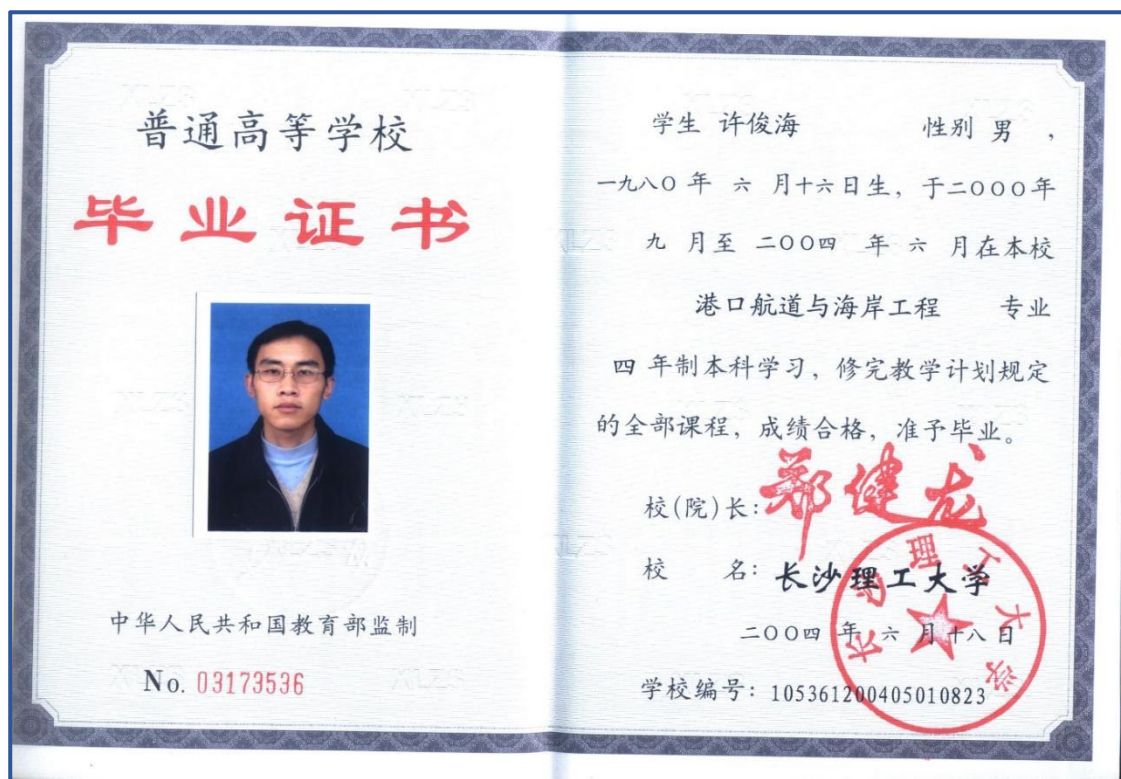 普通高等学校
毕业证书
中华人民共和国教育部监制
No. 03173536
学生 许俊海 性别 男 ,
一九八〇 年 六 月十六日生, 于二〇〇〇年
九 月至 二〇〇四 年 六 月在本校
港口航道与海岸工程 专业
四 年制本科学习, 修完教学计划规定
的全部课程, 成绩合格, 准予毕业。
校(院)长: 郑健龙
校 名: 长沙理工大学
二〇〇四 年 六 月 十八 日
学校编号: 105361200405010823
长沙理工大学